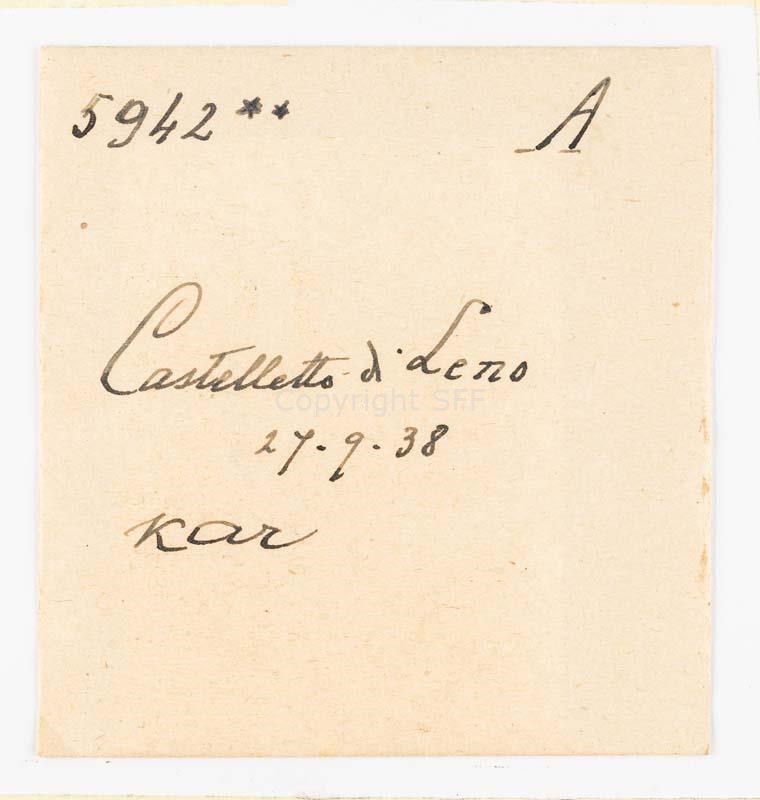 5942** A
Castelletto di Leno
Copyright SFF
27.9.38
Kar